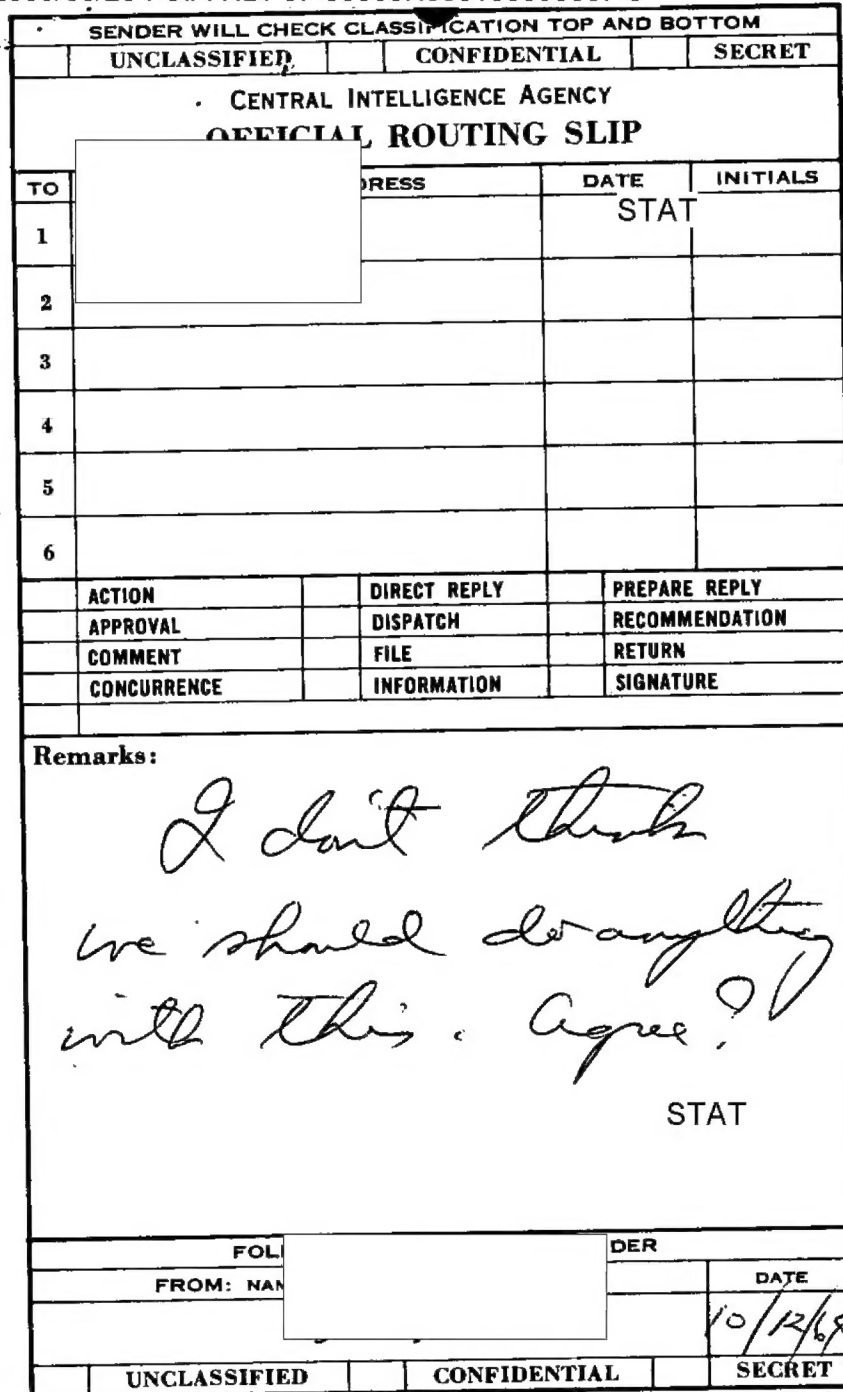 SENDER WILL CHECK CLASSIFICATION TOP AND BOTTOM
UNCLASSIFIED CONFIDENTIAL SECRET
CENTRAL INTELLIGENCE AGENCY
OFFICIAL ROUTING SLIP
TO DRESS DATE INITIALS
STAT
1
2
3
4
5
6
ACTION DIRECT REPLY PREPARE REPLY
APPROVAL DISPATCH RECOMMENDATION
COMMENT FILE RETURN
CONCURRENCE INFORMATION SIGNATURE
Remarks:
I don't think
we should do anything
with this. Agree?
STAT
FOL DER
FROM: NAM DATE
10/12/64
UNCLASSIFIED CONFIDENTIAL SECRET